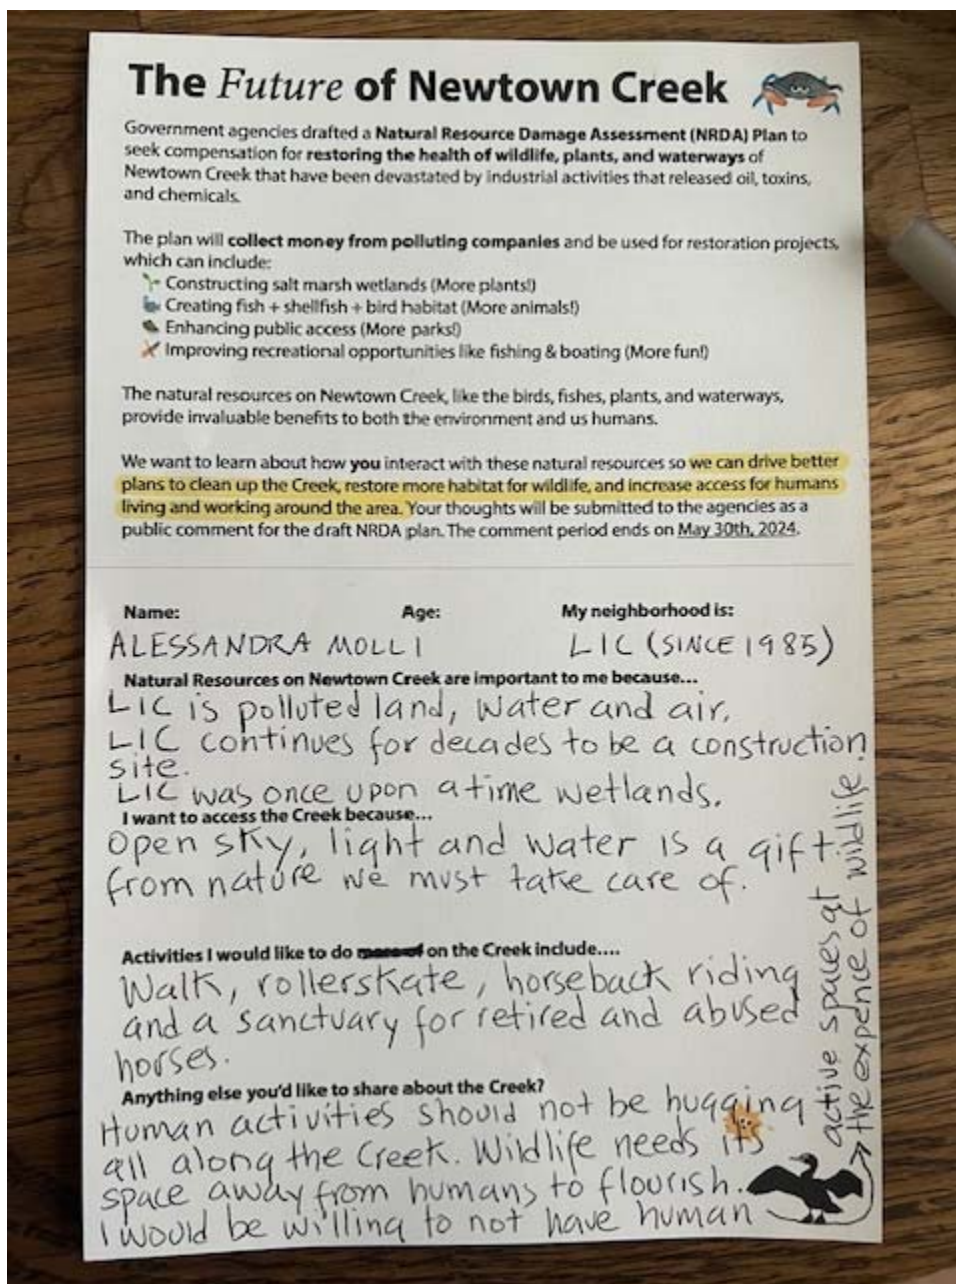 The Future of Newtown Creek
Government agencies drafted a Natural Resource Damage Assessment (NRDA) Plan to
seek compensation for restoring the health of wildlife, plants, and waterways of
Newtown Creek that have been devastated by industrial activities that released oil, toxins,
and chemicals.
The plan will collect money from polluting companies and be used for restoration projects,
which can include:
Constructing salt marsh wetlands (More plants!)
Creating fish + shellfish + bird habitat (More animals!)
Enhancing public access (More parks!)
Improving recreational opportunities like fishing & boating (More fun!)
The natural resources on Newtown Creek, like the birds, fishes, plants, and waterways,
provide invaluable benefits to both the environment and us humans.
We want to learn about how you interact with these natural resources so we can drive better
plans to clean up the Creek, restore more habitat for wildlife, and increase access for humans
living and working around the area. Your thoughts will be submitted to the agencies as a
public comment for the draft NRDA plan. The comment period ends on May 30th, 2024.
Name: Age: My neighborhood is:
ALESSANDRA MOLLI LIC (SINCE 1985)
Natural Resources on Newtown Creek are important to me because...
LIC is polluted land, water and air.
LIC continues for decades to be a construction
site.
LIC was once upon a time wetlands.
I want to access the Creek because...
Open sky, light and water is a gift
from nature we must take care of.
Activities I would like to do more of on the Creek include....
Walk, rollerskate, horseback riding
and a sanctuary for retired and abused
horses.
Anything else you'd like to share about the Creek?
Human activities should not be hugging
all along the Creek. Wildlife needs its
space away from humans to flourish.
I would be willing to not have human
active spaces at
the expence of wildlife.